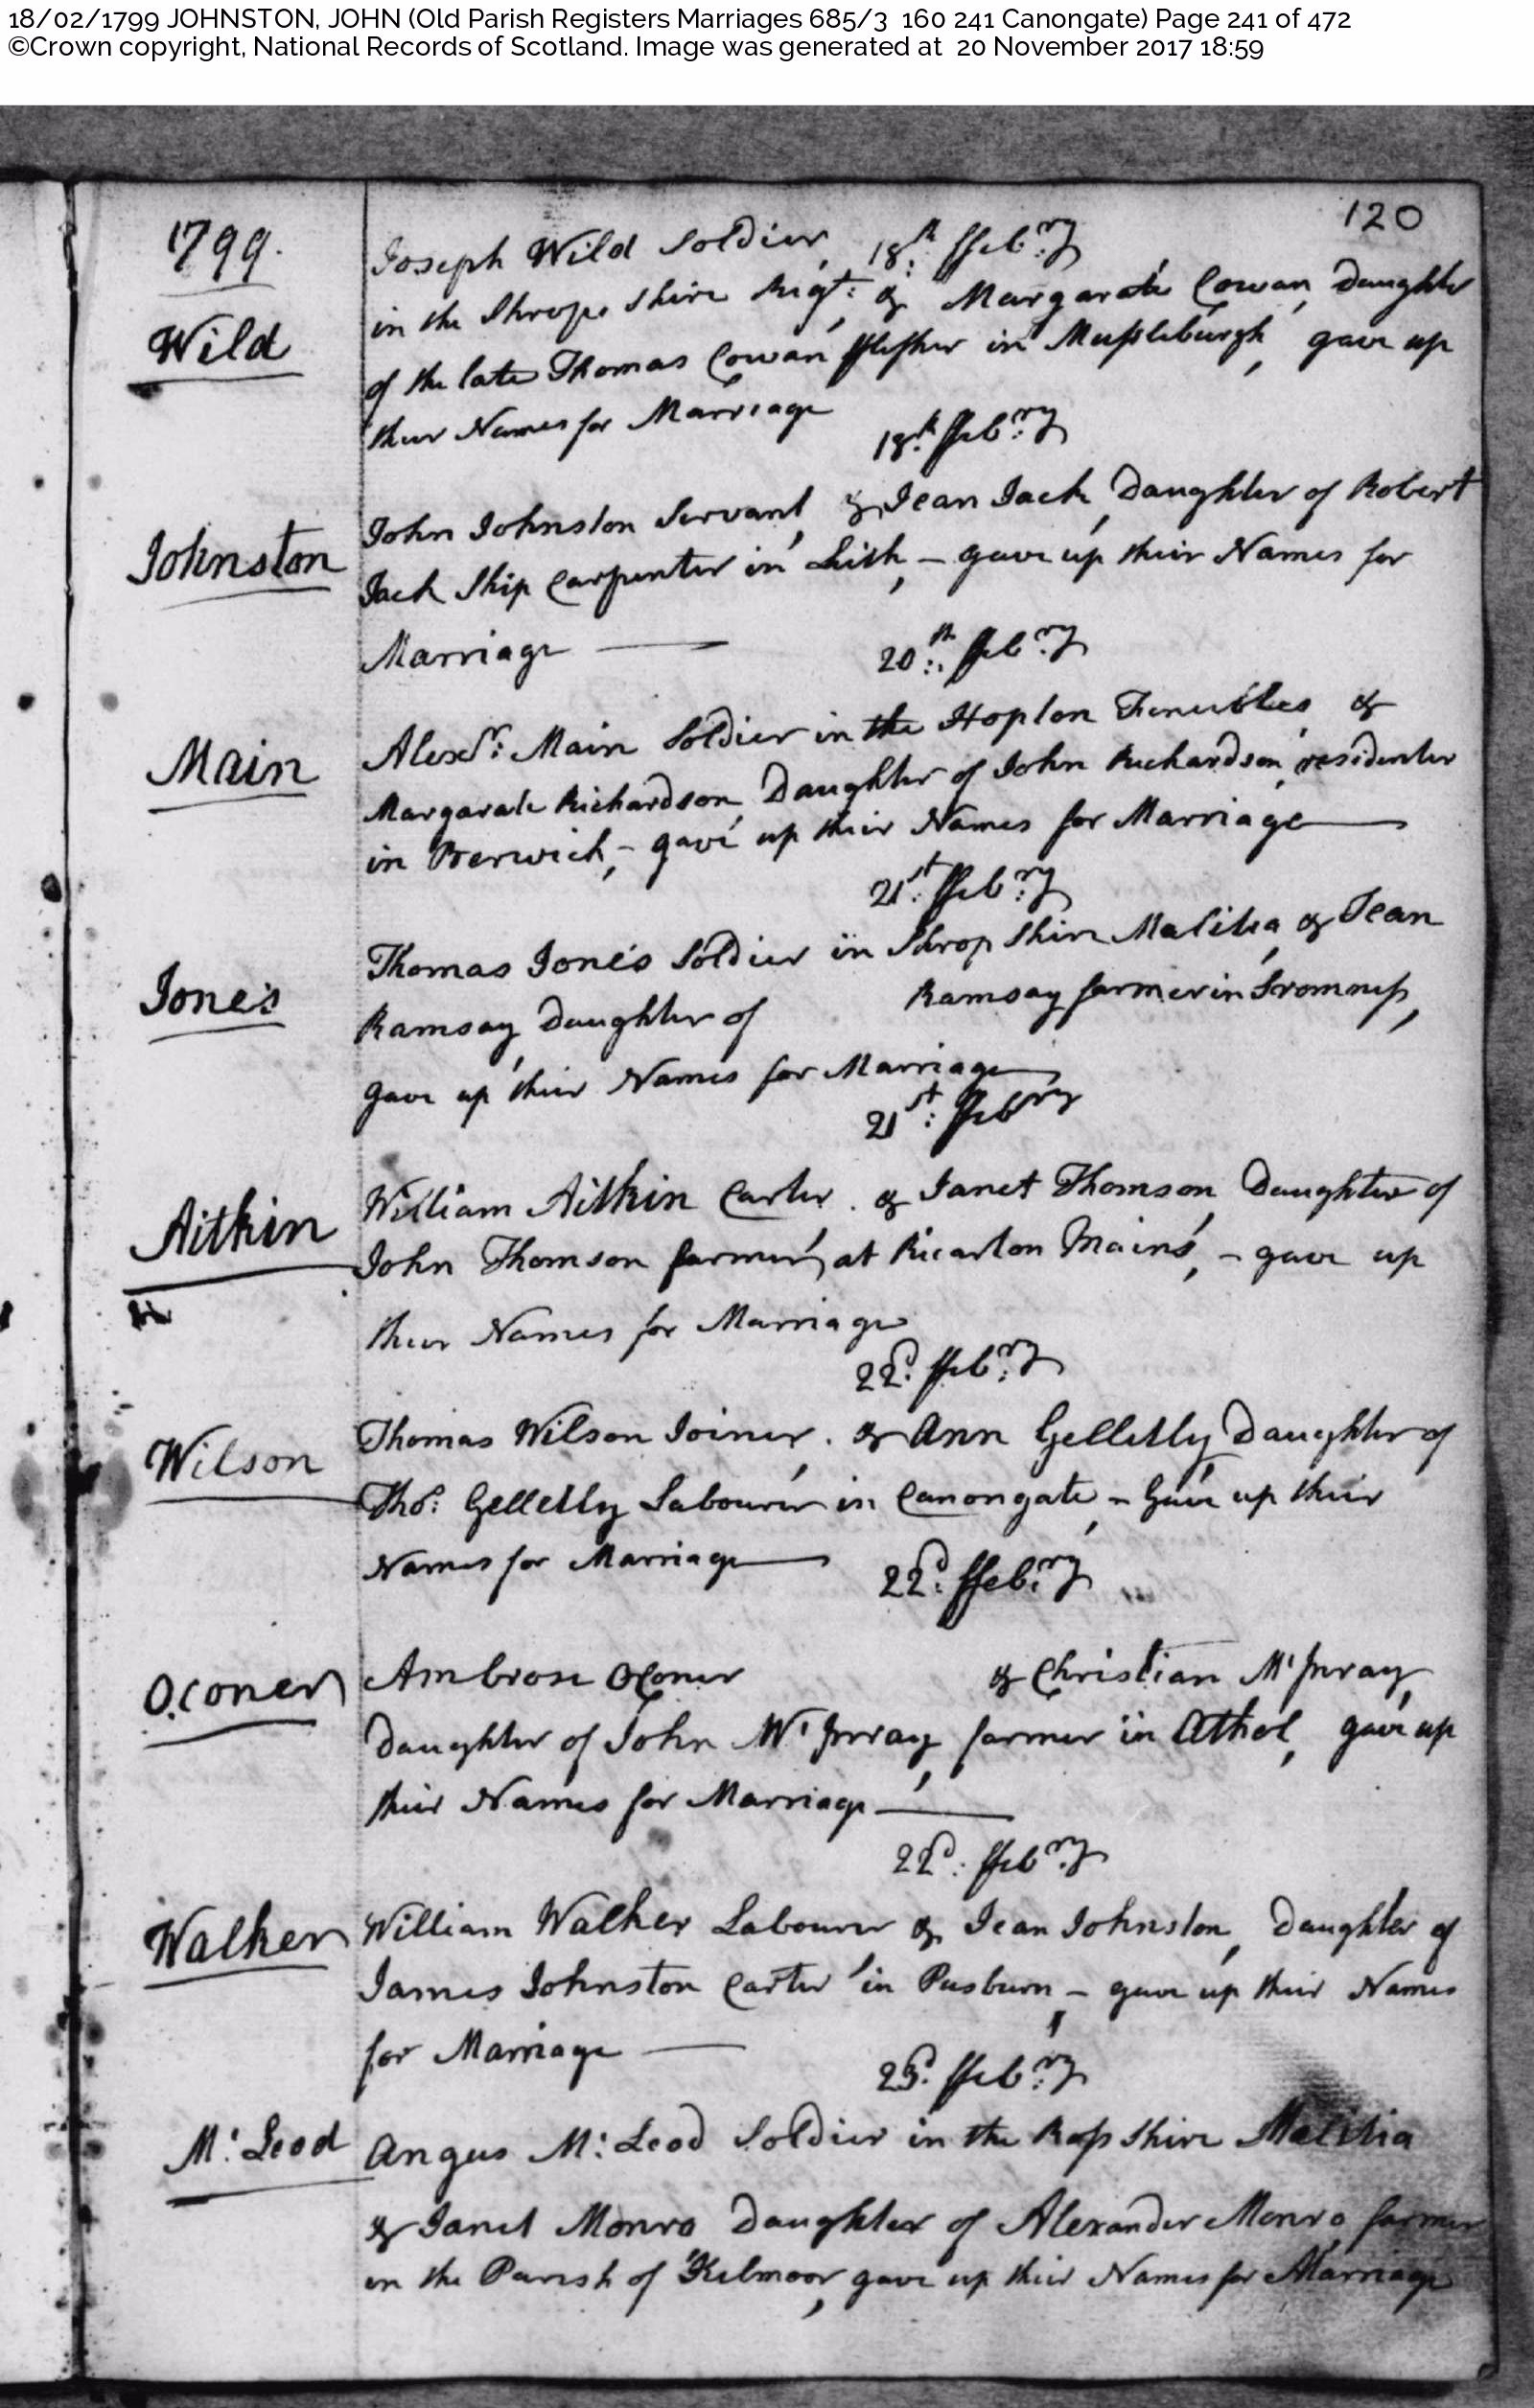 18/02/1799 JOHNSTON, JOHN (Old Parish Registers Marriages 685/3 160 241 Canongate) Page 241 of 472
©Crown copyright, National Records of Scotland. Image was generated at 20 November 2017 18:59
120
1799.
18th: ffeb:ry
Wild
Joseph Wild Soldier,
in the Shropshire Regt: & Margarate Cowan, Daughter
of the late Thomas Cowan fflesher in Mussleburgh, gave up
their Names for Marriage
18th: ffeb:ry
Johnston
John Johnston Servant, & Jean Jack, Daughter of Robert
Jack Ship Carpenter in Leith, – gave up their Names for
Marriage —
20th: ffeb:ry
Main
Alexdr: Main Soldier in the Hopton Fencibles, &
Margarate Richardson, Daughter of John Richardson, residenter
in Berwick, – gave up their Names for Marriage —
21st: ffeb:ry
Jones
Thomas Jones Soldier in Shropshire Malitia, & Jean
Ramsay, Daughter of Ramsay farmer in
gave up their Names for Marriage —
21st: ffebry
Aitkin
William Aitkin Carter. & Janet Thomson, Daughter of
John Thomson farmer, at Ricarton Mains, – gave up
their Names for Marriage
22d: ffeb:ry
Wilson
Thomas Wilson Joiner, & Ann Gelletly, Daughter of
Thos: Gelletly Labourer in Canongate, – Gave up their
Names for Marriage —
22d: ffeb:ry
O,Coner
Ambrose OConer & Christian McInray,
Daughter of John McInray, farmer in Athol, gave up
their Names for Marriage —
22d: ffeb:ry
Walker
William Walker Labourer & Jean Johnston, Daughter of
James Johnston Carter in Pusburn, – gave up their Names
for Marriage —
23d: ffeb:ry
Mc: Leod
Angus Mc: Leod Soldier in the Ross Shire Malitia
& Janet Monro Daughter of Alexander Monro, farmer
in the Parish of Kilmoor, gave up their Names for Marriage